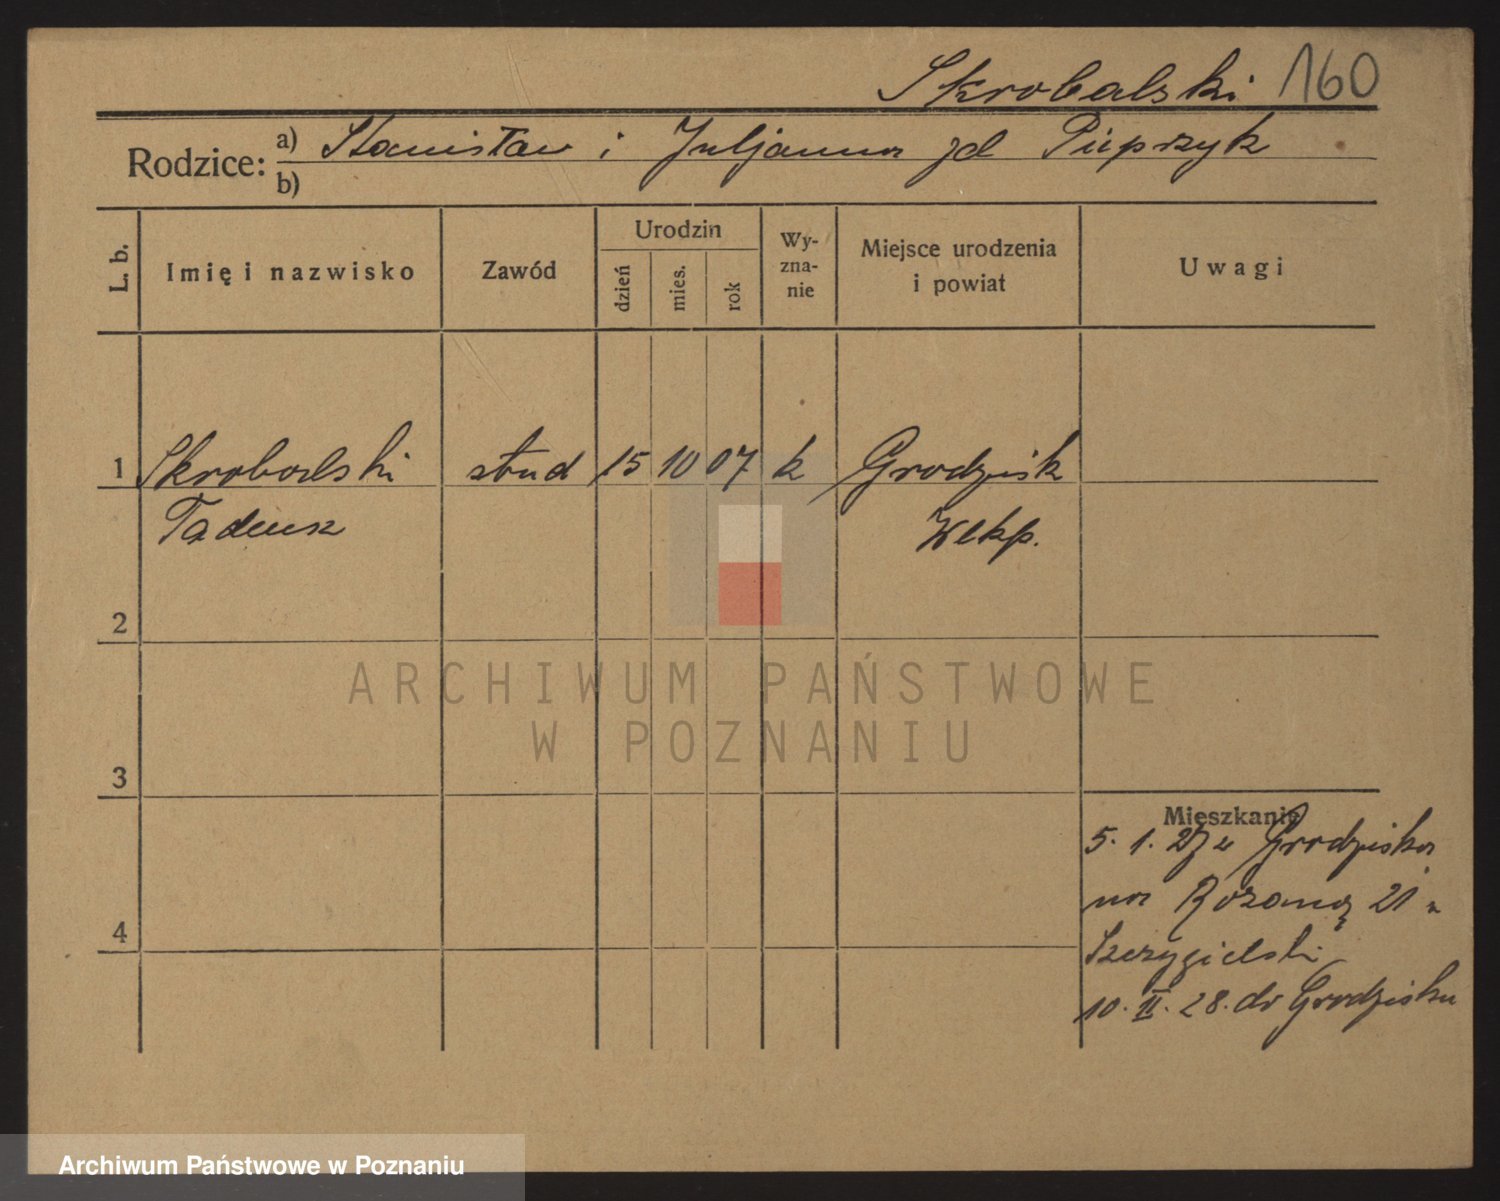 Skrobalski 160
Rodzice: a) Stanisław i Juljanna zd Pieprzyk
b)
L. b. Imię i nazwisko Zawód Urodzin dzień mies. rok Wy-zna-nie Miejsce urodzenia i powiat Uwagi
1 Skrobalski stud 15 10 07 k Grodzisk
Tadeusz Wlkp.
2
ARCHIWUM PAŃSTWOWE
W POZNANIU
3
Mieszkanie
5. 1. 27 z Grodziska
na Różaną 21 u
4
Szczygielski
10. II. 28. do Grodziska
Archiwum Państwowe w Poznaniu